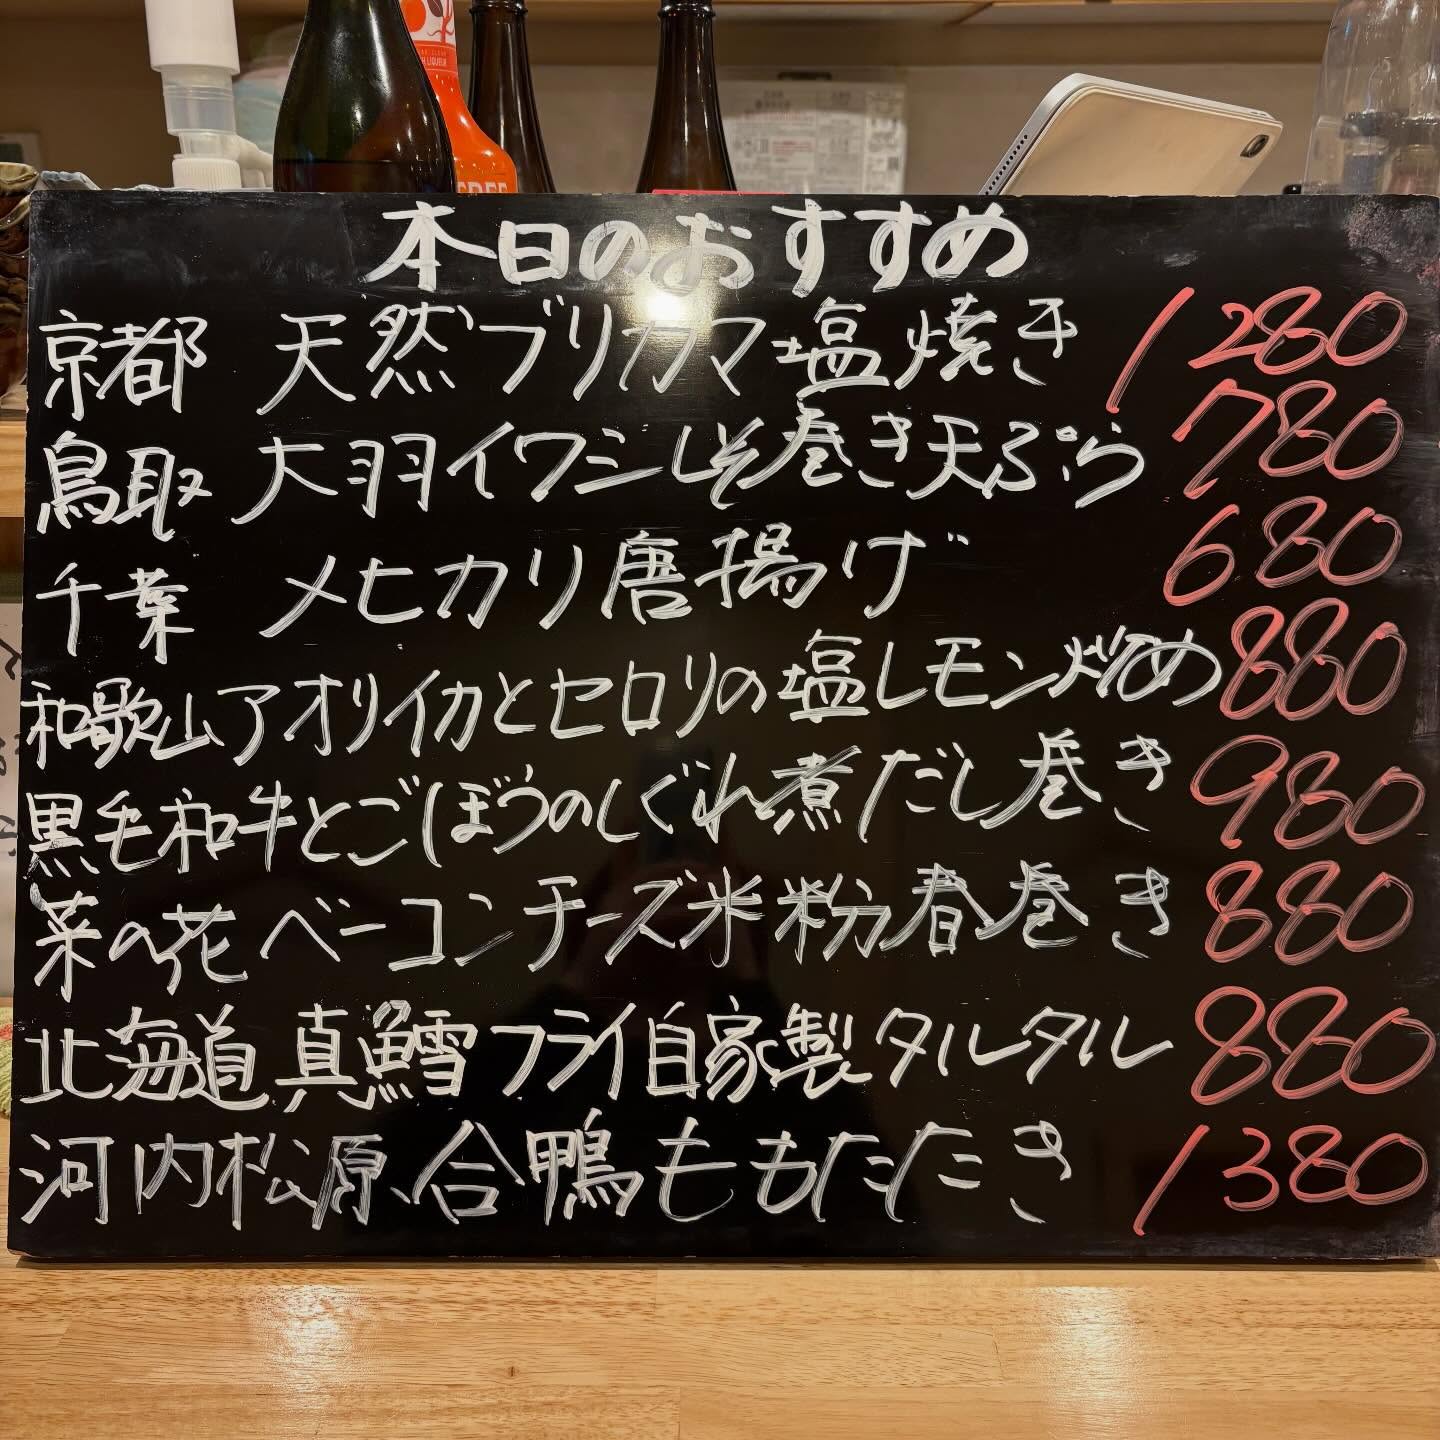 本日のおすすめ
京都 天然ブリカマ塩焼き 1280
鳥取 大羽イワシしそ巻き天ぷら 780
千葉 メヒカリ唐揚げ 680
和歌山アオリイカとセロリの塩レモン炒め 880
黒毛和牛とごぼうのしぐれ煮だし巻き 980
菜の花ベーコンチーズ米粉春巻き 880
北海道真鱈フライ自家製タルタル 880
河内松原、合鴨ももたたき 1380